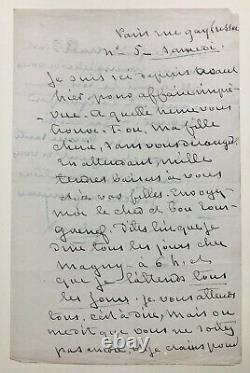 Paris rue gay lussac
n° 5 - samedi.
Je suis ici depuis avant
hier, pour affaire impré-
vue. A quelle heure vous
trouve-t-on, ma fille
chérie, sans vous déranger.
En attendant, mille
tendres baisers à vous
et à vos filles. Envoyez
moi le cher et bon
dites lui que je
dîne tous les jours chez
Magny - à 6 h. et
que je l'attends tous
les jours. je vous attends
tous, c'est à dire, mais on
me dit que vous ne sortez
pas encore, et je crains pour